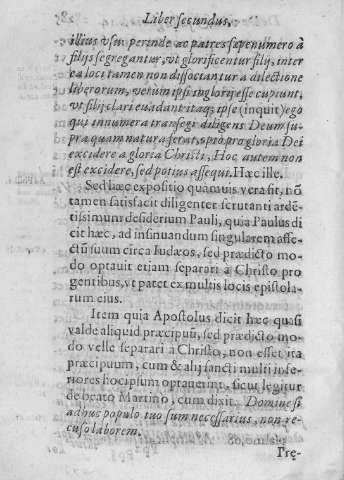 Liber secundus,
illius vsu. perinde ac patres sæpenumero à
filijs segregantur, vt glorificentur filij, inter
ea loci tamen non dissociantur a dilectione
liberorum, verùm ipsi inglorij esse cupiunt,
vt filij clari euadant itaq; ipse (inquit) ego
qui innumera transegi diligens Deum su-
pra quam natura ferat, opto pro gloria Dei
excidere a gloria Christi, Hoc autem non
est excidere, sed potius assequi. Hæc ille.
Sed hæc expositio quamuis vera sit, nõ
tamen satisfacit diligenter scrutanti ardẽ-
tissimum desiderium Pauli, quia Paulus di
cit hæc, ad insinuandum singularem affe-
ctũ suum circa Iudæos, sed prædicto mo-
do optauit etiam separari à Christo pro
gentibus, vt patet ex multis locis epistola-
rum eius.
Item quia Apostolus dicit hæc quasi
valde aliquid præcipuũ, sed prædicto mo-
do velle separari à Christo, non esset ita
præcipuum, cum & alij sancti multi infe-
riores hoc ipsum optauerint, sicut legitur
de beato Martino, cum dixit. Domine si
adhuc populo tuo sum necessarius, non re-
cuso laborem.
Prę-